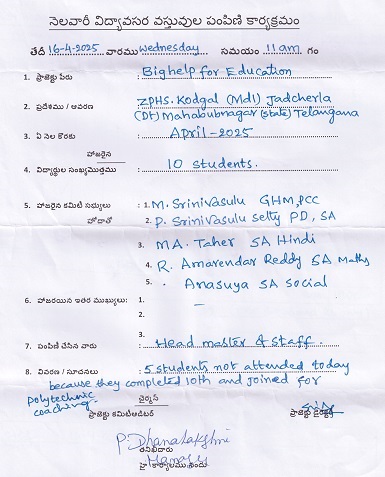 నెలవారీ విద్యావసర వస్తువుల పంపిణి కార్యక్రమం
తేదీ 16-4-2025 వారము Wednesday సమయం 11 am గం
1. ప్రాజెక్టు పేరు : Bighelp for Education
2. ప్రదేశము / ఆవరణ : ZPHS. Kodgal (Mdl) Jadcherla
(Dt) Mahabubnagar (state) Telangana
3. ఏ నెల కొరకు : April-2025
హాజరైన
4. విద్యార్థుల సంఖ్యమొత్తము : 10 students.
5. హాజరైన కమిటి సభ్యులు : 1. M. Srinivasulu GHM, PCC
హోదాతో 2. P. Srinivasulu Setty PD, SA
3. MA. Taher SA Hindi
4. R. Amarendar Reddy SA Maths
5. Anasuya SA Social
6. హాజరయిన ఇతర ముఖ్యులు: 1. –
2.
3.
7. పంపిణి చేసిన వారు : Head master & Staff.
8. వివరణ / సూచనలు : 5 students not attended today
because they completed 10th and joined for
polytechnic
coaching.
ప్రాజెక్టు కమిటీఆడిటర్ ప్రాజెక్టు డైరెక్టర్
P. Dhanalakshmi